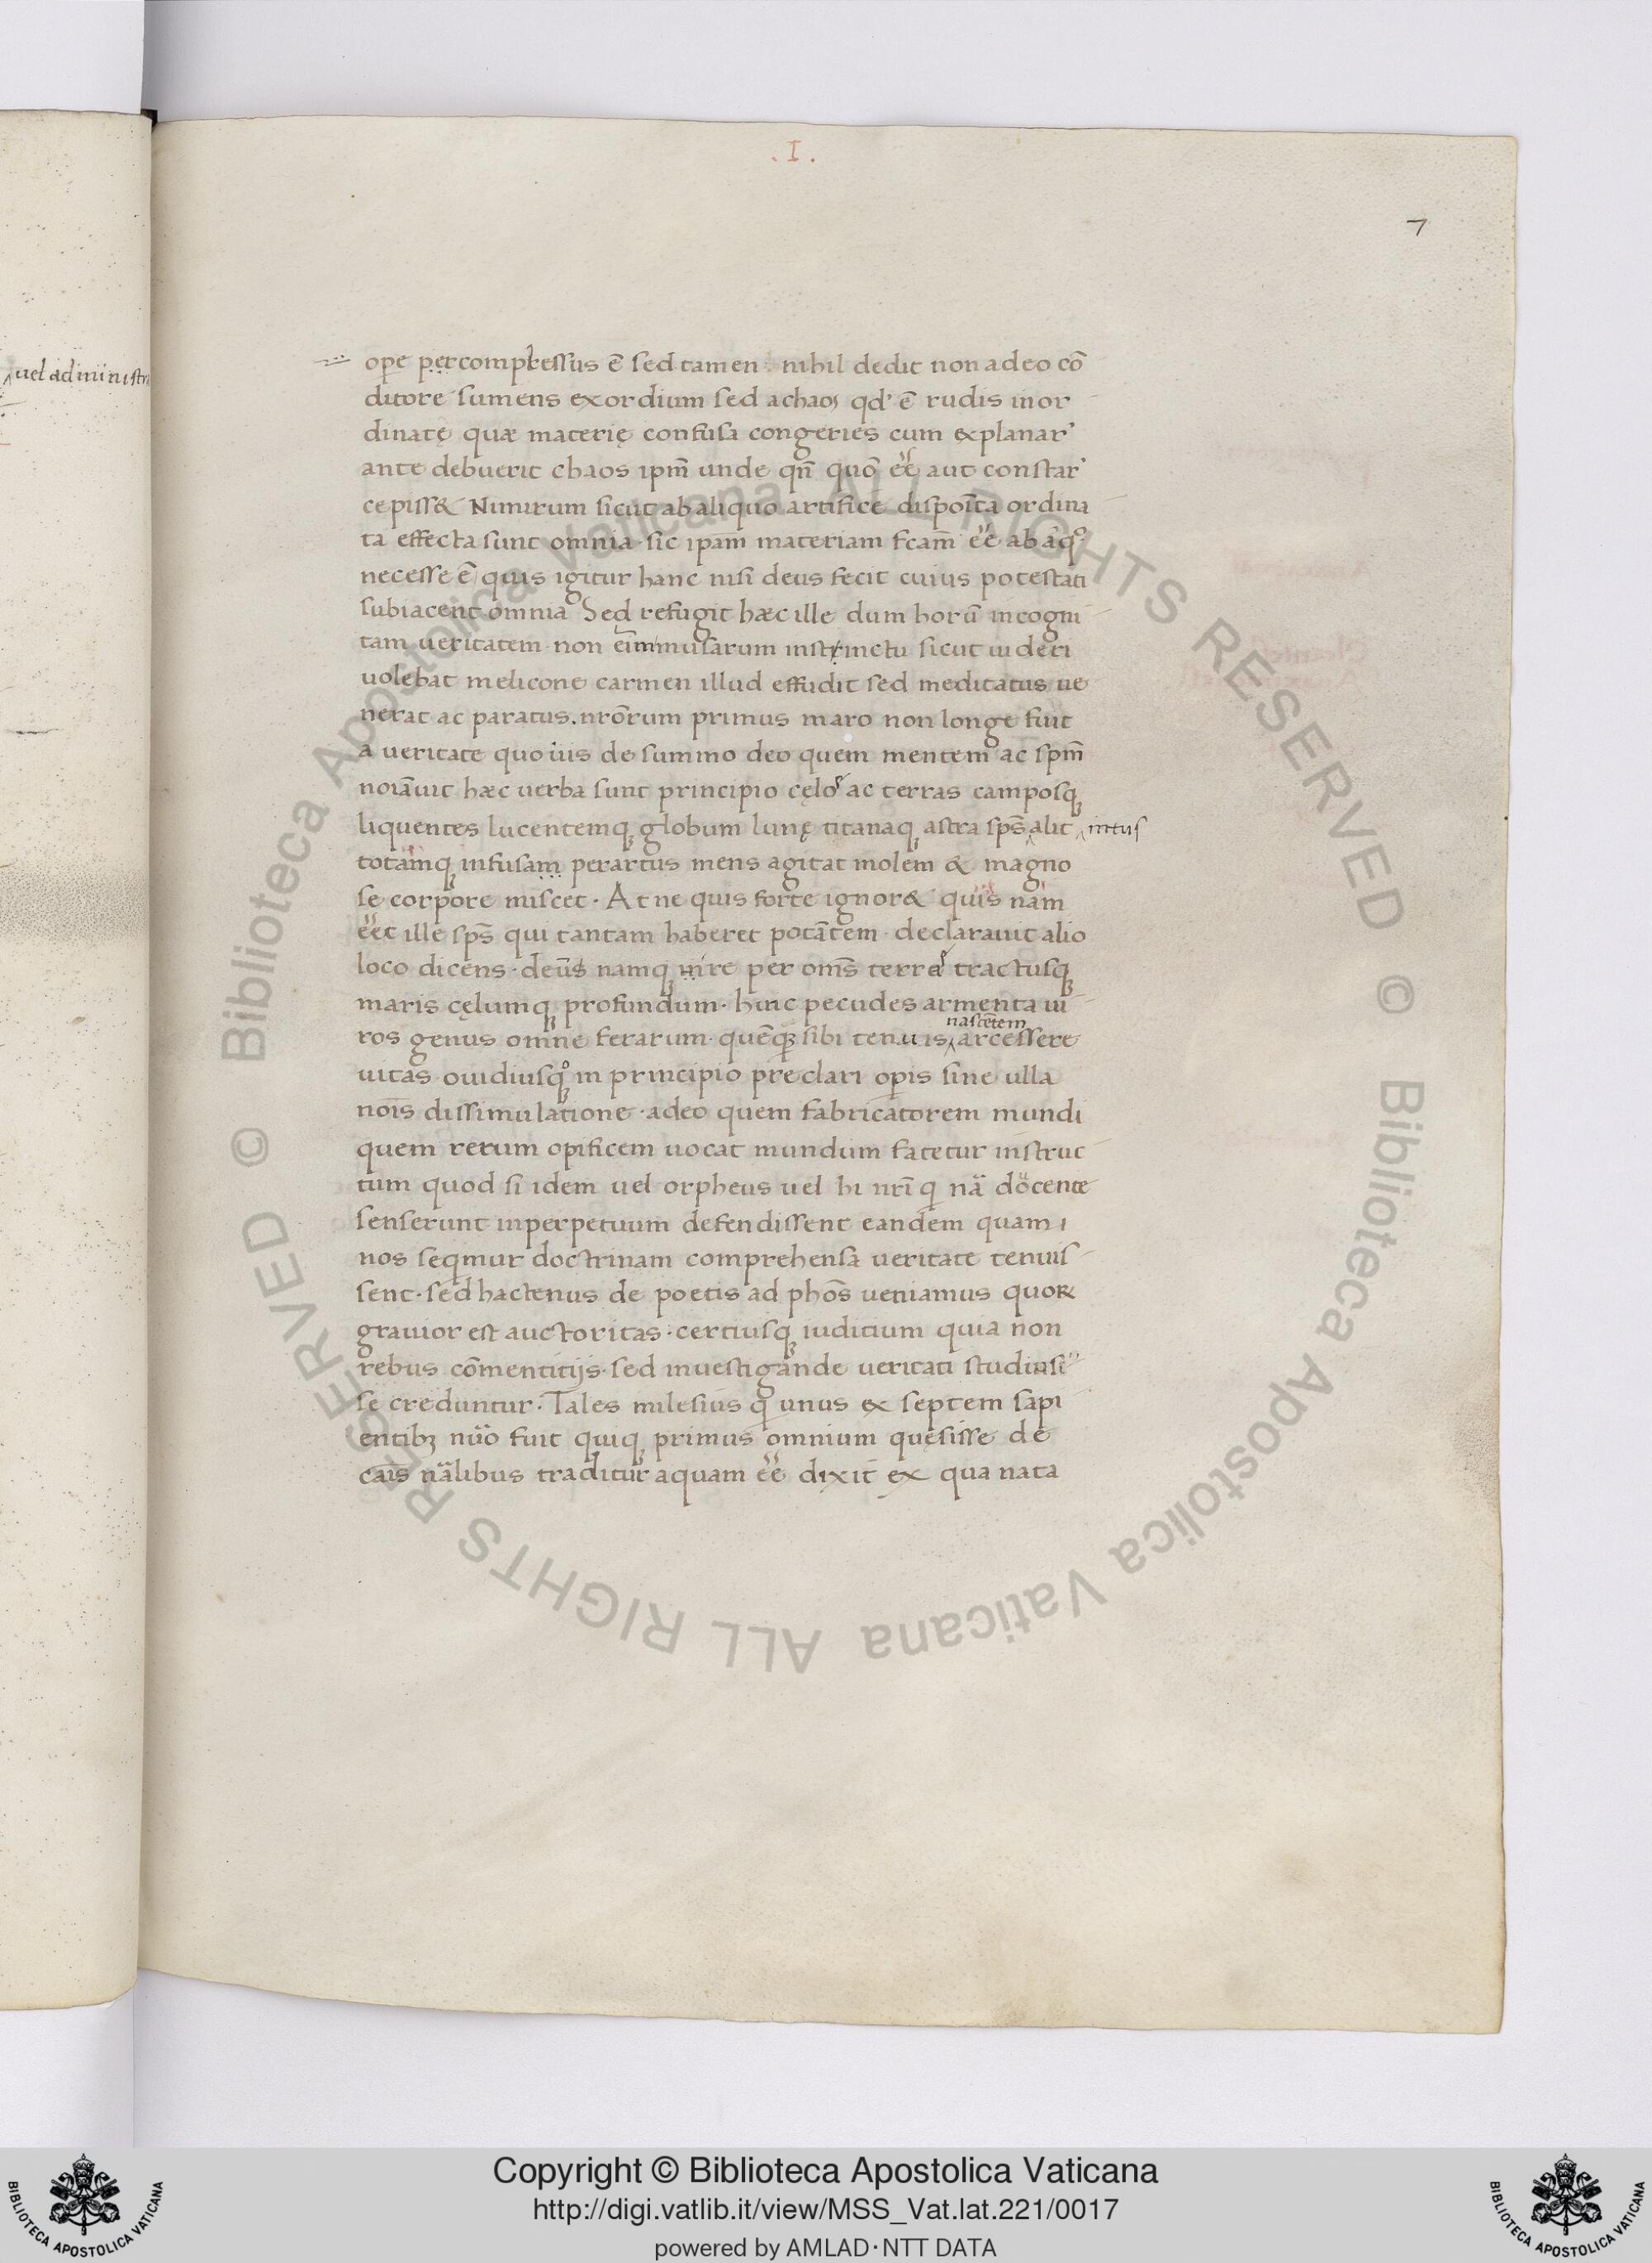 .I.
7
uel administr
ope percompressus ē sed tamen nihil dedit non adeo cō
ditore sumens exordium sed achaos qd' ē rudis inor
dinatę quæ materię confusa congeries cum explanar'
ante debuerit chaos ipm̄ unde qn̄ quō ee̋ aut constar'
cepiss& Nimirum sicut ab aliquo artifice dispoīta ordina
ta effecta sunt omnia · sic ipam̄ materiam fcam̄ ee̋ ab aq̊
necesse ē quis igitur hanc nisi deus fecit cuius potestati
subiacent omnia Sed refugit hæc ille dum horū incogni
tam ueritatem · non eī musarum instrinctu sicut uideri
uolebat melicone carmen illud effudit sed meditatus ue
nerat ac paratus. nrōrum primus maro non longe fuit
a ueritate quoius de summo deo quem mentem ac spm̄
noīauit hæc uerba sunt principio cęlo ac terras camposq
liquentes lucentemq globum lunę titanaq astra sps̄ alit intus
totamq infusam perartus mens agitat molem & magno
se corpore miscet · At ne quis forte ignor& quis nam
eet ille sps̄ qui tantam haberet potātem · declarauit alio
loco dicens · deus namq ire per oms̄ terra tractusq
maris cęlumq profundum · hinc pecudes armenta ui
ros genus omne ferarum · quēq sibi tenuis arcessere
nascētem
uitas ouidiusq̊ in principio preclari opis sine ulla
nois dissimulatione · adeo quem fabricatorem mundi
quem rerum opificem uocat mundum fatetur instruc
tum quod si idem uel orpheus uel hi nrī q nā docente
senserunt inperpetuum defendissent eandem quam
nos seqmur doctrinam comprehensa ueritate tenuis
sent · sed hactenus de poetis ad phōs ueniamus quoꝝ
grauior est auctoritas · certiusq iuditium quia non
rebus cōmentitijs · sed inuestigande ueritati studiusi
se creduntur · Tales milesius q unus ex septem sapi
entibꝫ nūo fuit quiq primus omnium quęsisse de
cais nālibus traditur aquam ee̋ dixit ex qua nata
Copyright © Biblioteca Apostolica Vaticana
http://digi.vatlib.it/view/MSS_Vat.lat.221/0017
powered by AMLAD·NTT DATA
BIBLIOTECA APOSTOLICA VATICANA
BIBLIOTECA APOSTOLICA VATICANA
© Biblioteca Apostolica Vaticana ALL RIGHTS RESERVED
© Biblioteca Apostolica Vaticana ALL RIGHTS RESERVED